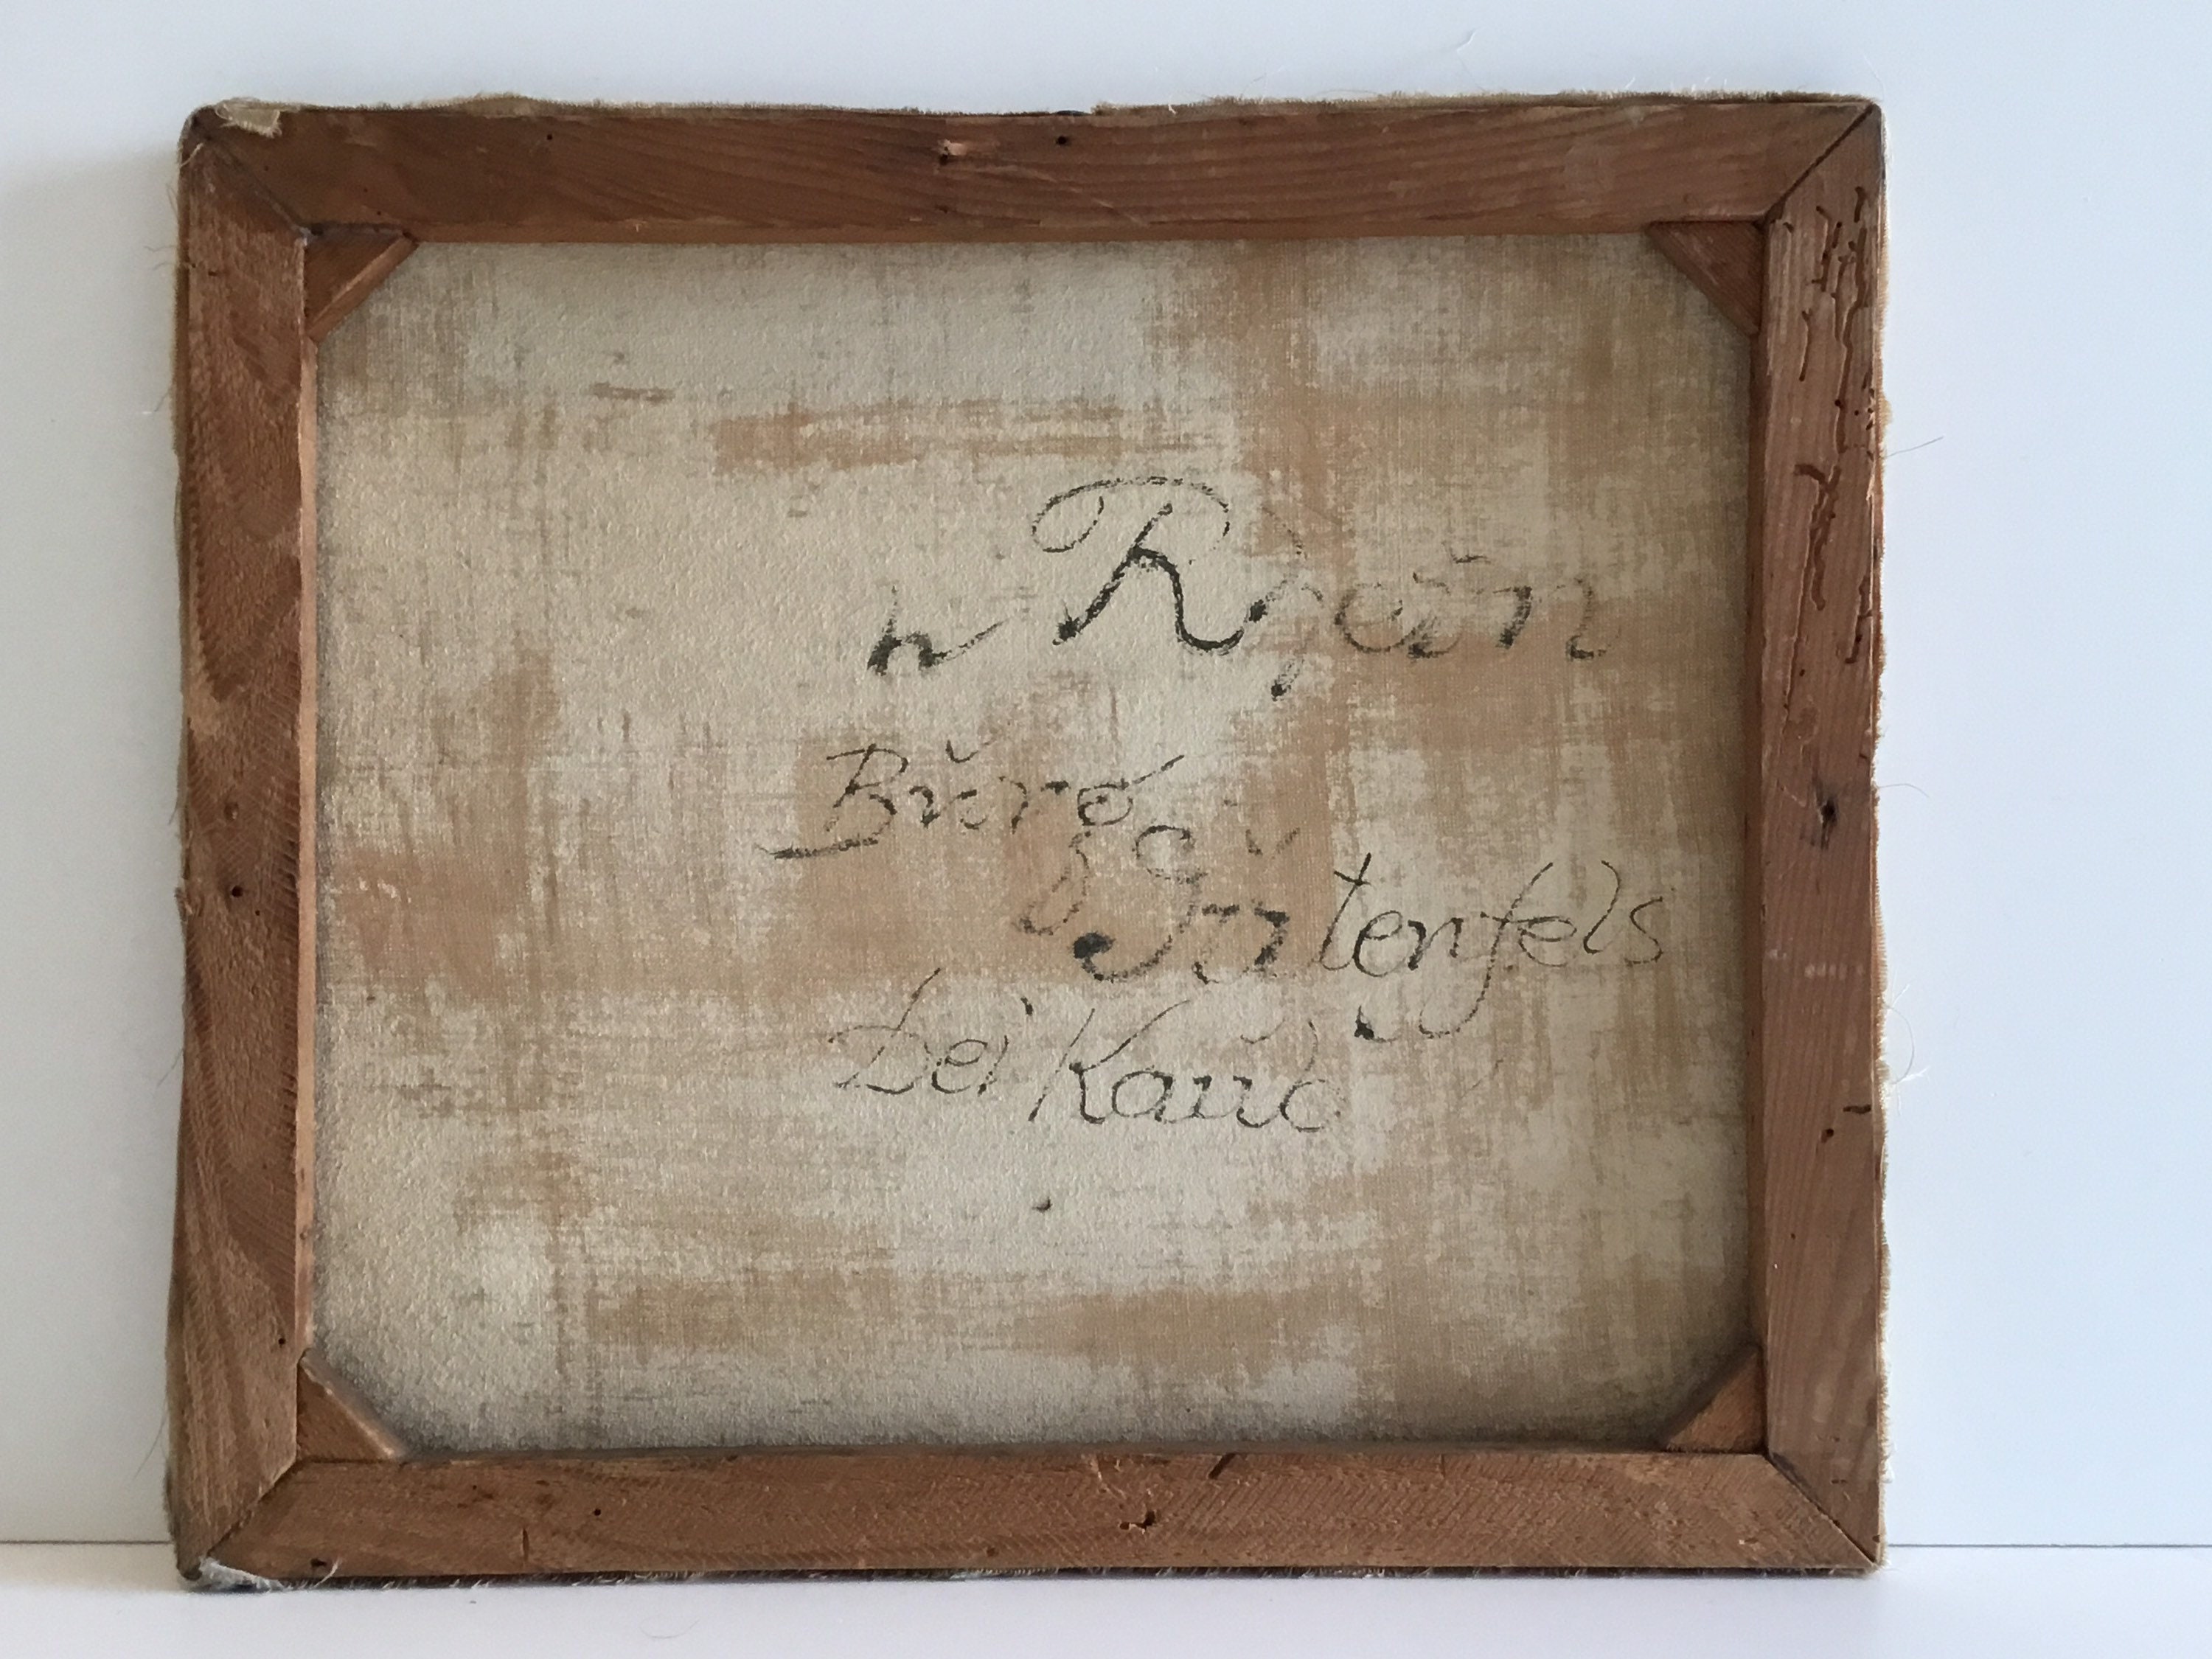 Rhein
Burg
Gutenfels
bei Kaub